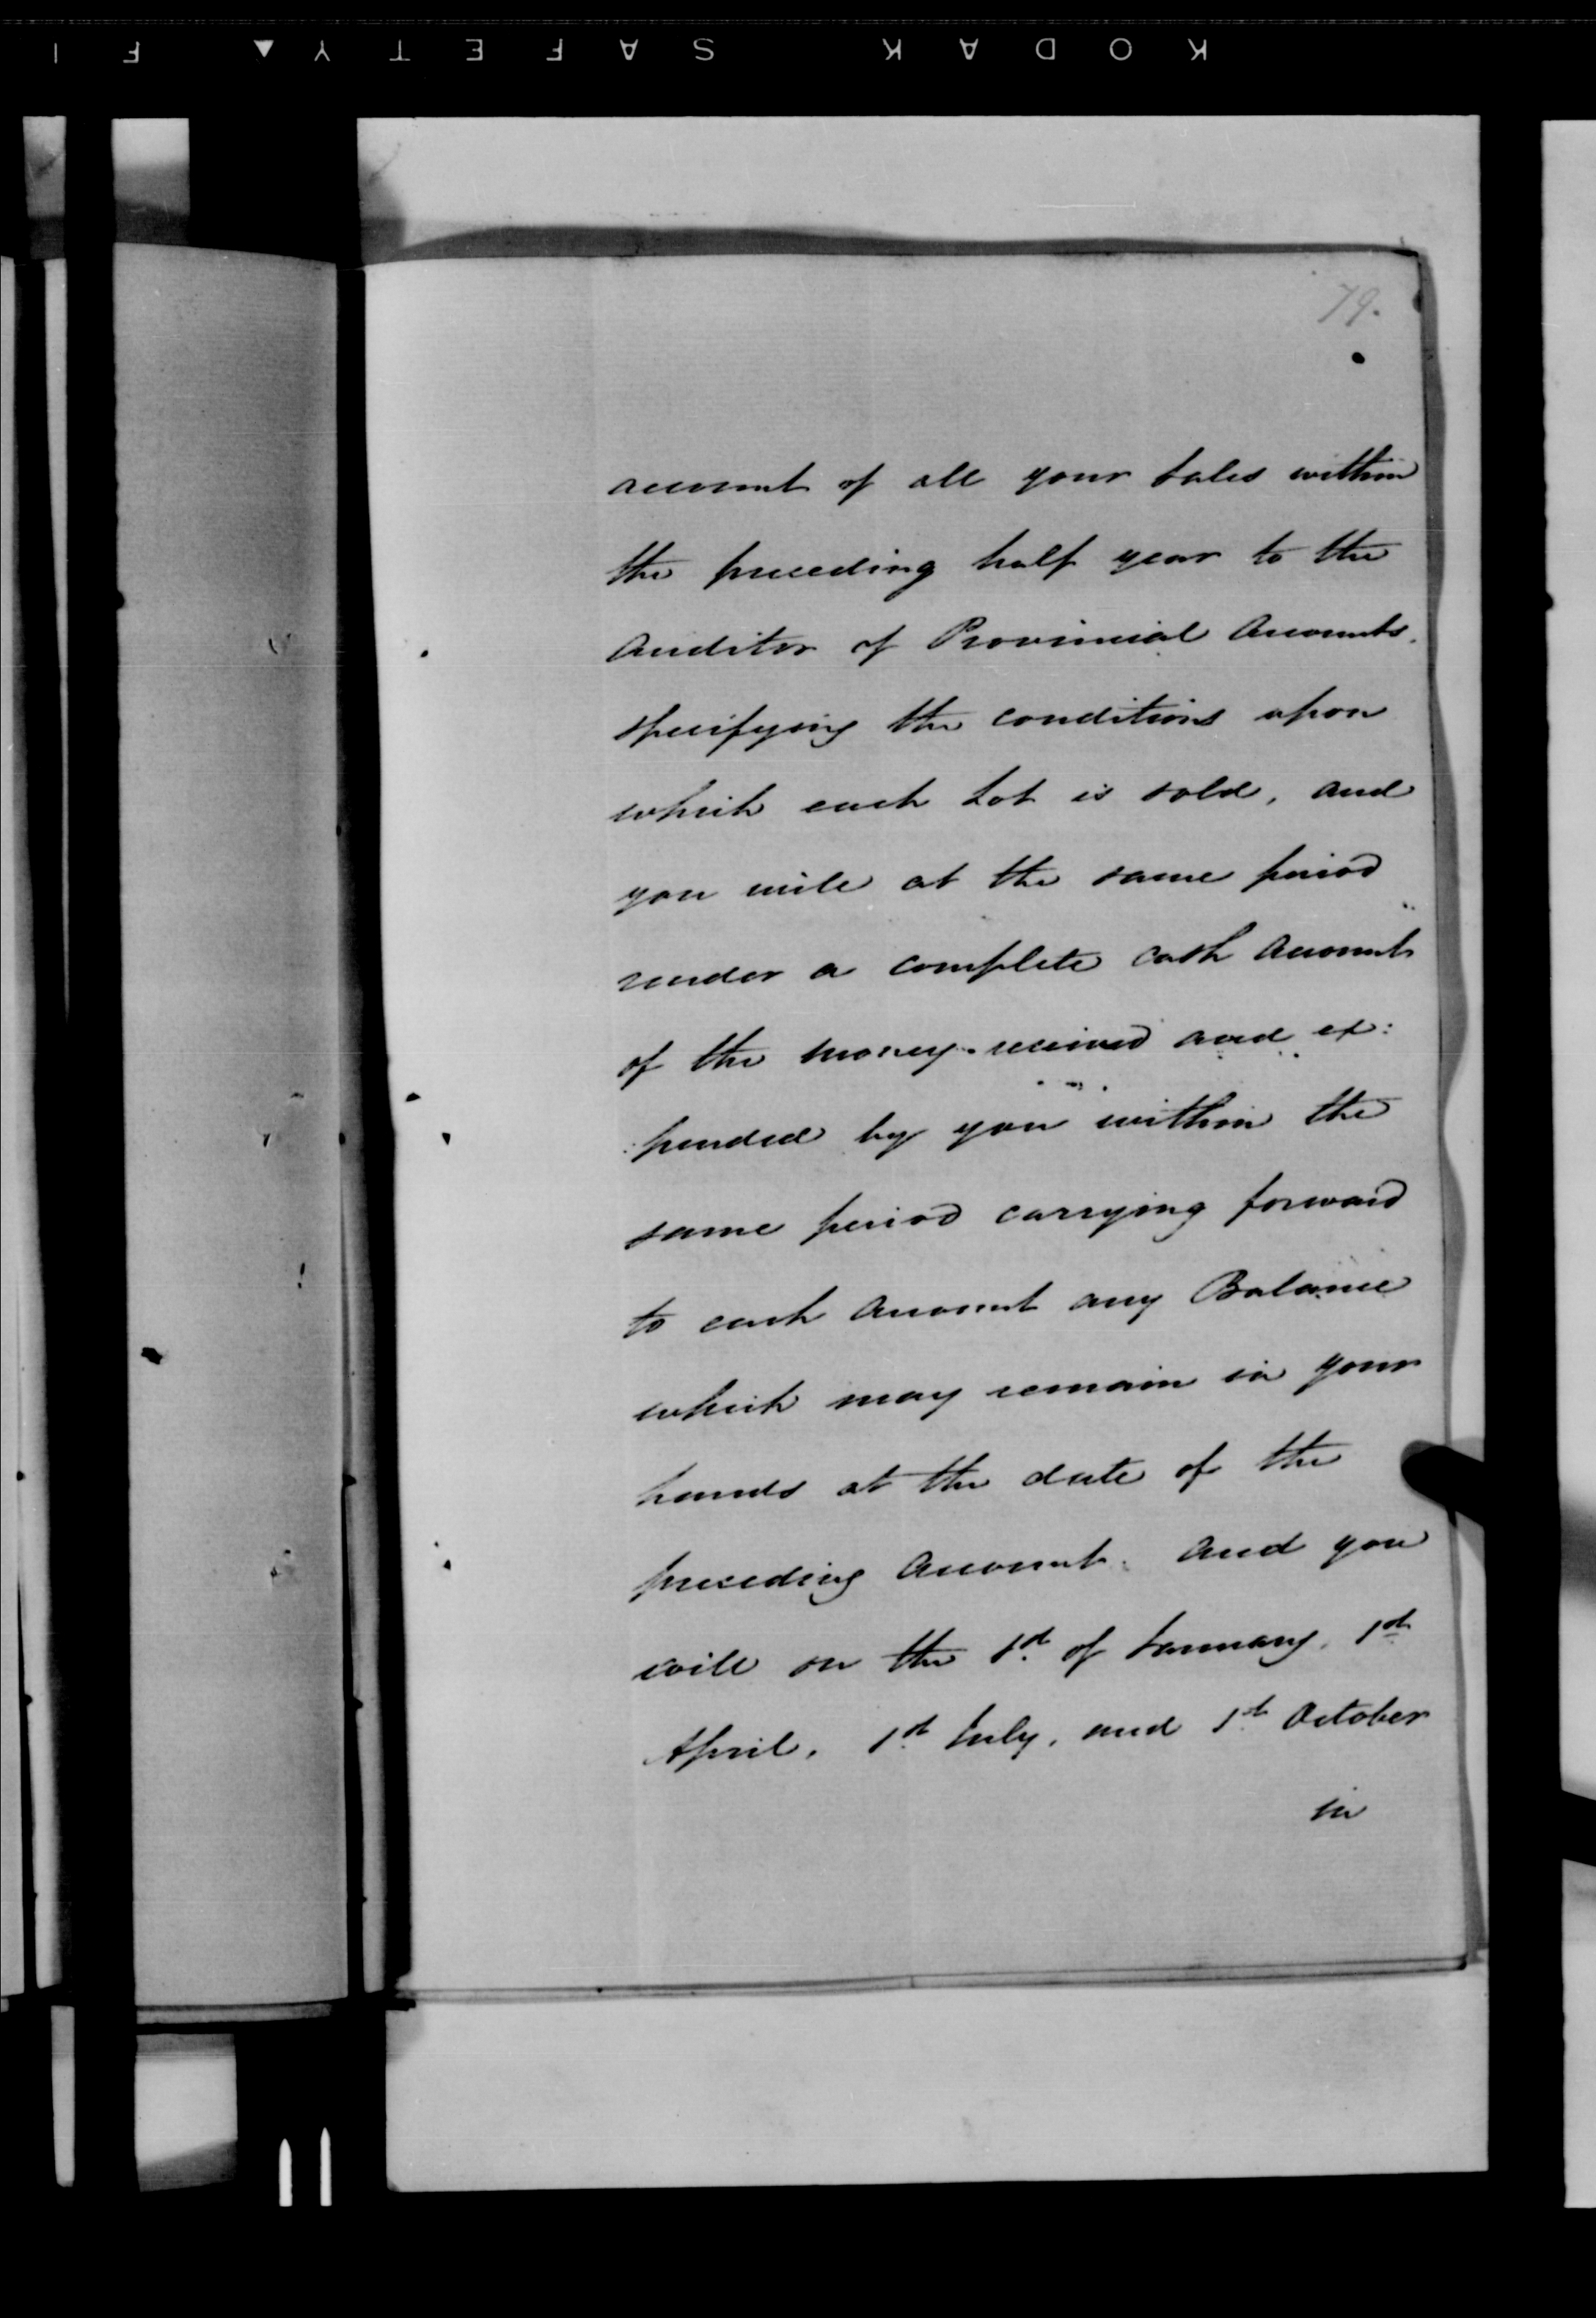 KODAK SAFETY ▲ FI
79.
account of all your Sales within
the preceding half year to the
Auditor of Provincial Accounts.
specifying the conditions upon
which each Lot is sold, and
you will at the same period
render a complete cash Account
of the money received and ex:
:pended by you within the
same period carrying forward
to each Account any Balance
which may remain in your
hands at the date of the
preceding Account. And you
will on the 1st of January, 1st
April, 1st July, and 1st October
in